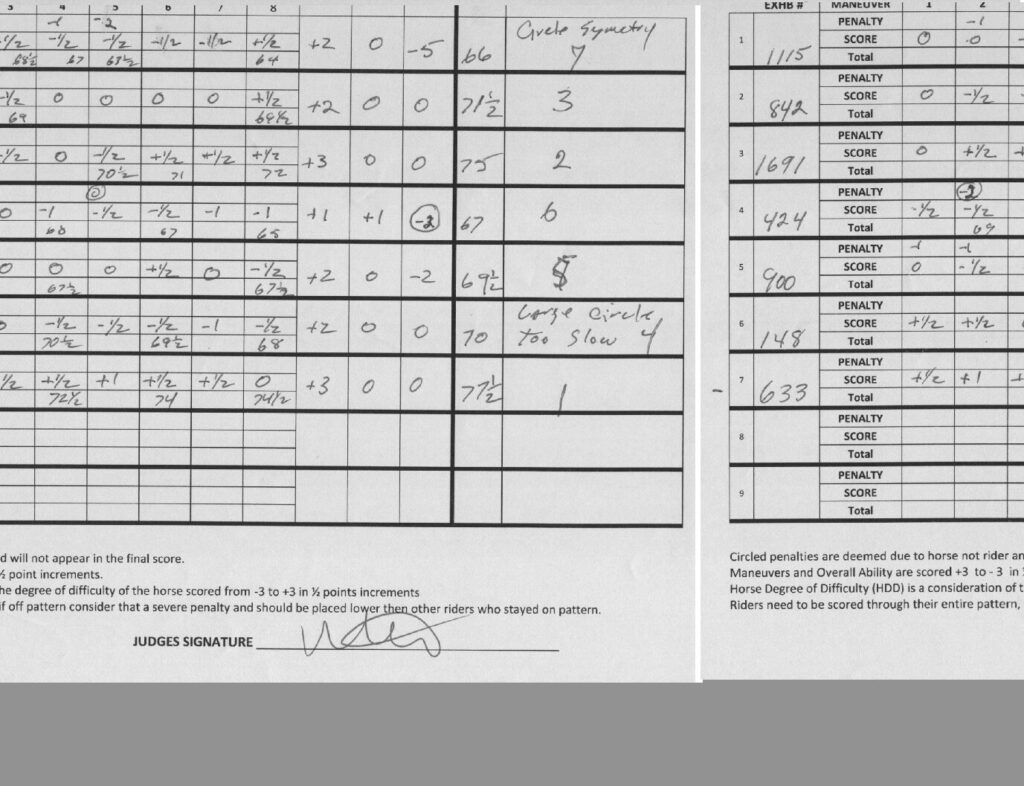 3 4 5 6 7 8
-1 -2
-1/2 -1/2 -1/2 -1/2 -1/2 +1/2 +2 0 -5 66 Circle Symetry
68½ 67 63½ 64 7
-1/2 0 0 0 0 +1/2 +2 0 0 71½ 3
69 69½
-1/2 0 -1/2 +1/2 +1/2 +1/2 +3 0 0 75 2
70½ 71 72
0 -1 -1/2 -1/2 -1 -1 +1 +1 67 6
68 67 65
0 0 0 +1/2 0 -1/2 +2 0 -2 69½ 5
67½ 67½
0 -1/2 -1/2 -1/2 -1 -1/2 +2 0 0 70 Large Circle
70½ 69½ 68 too slow 4
1/2 +1/2 +1 +1/2 +1/2 0 +3 0 0 77½ 1
72½ 74 74½
d will not appear in the final score.
½ point increments.
he degree of difficulty of the horse scored from -3 to +3 in ½ points increments
if off pattern consider that a severe penalty and should be placed lower then other riders who stayed on pattern.
JUDGES SIGNATURE
EXHB # MANEUVER 1 2
PENALTY -1
1 1115 SCORE 0 -0 -
Total
PENALTY
2 842 SCORE 0 -1/2
Total
PENALTY
3 1691 SCORE 0 +1/2 +
Total
PENALTY
4 424 SCORE -1/2 -1/2
Total 69
PENALTY -1 -1
5 900 SCORE 0 -1/2
Total
PENALTY
6 148 SCORE +1/2 +1/2
Total
PENALTY
7 633 SCORE +1/2 +1
Total
PENALTY
8 SCORE
Total
PENALTY
9 SCORE
Total
Circled penalties are deemed due to horse not rider an
Maneuvers and Overall Ability are scored +3 to - 3 in
Horse Degree of Difficulty (HDD) is a consideration of t
Riders need to be scored through their entire pattern,